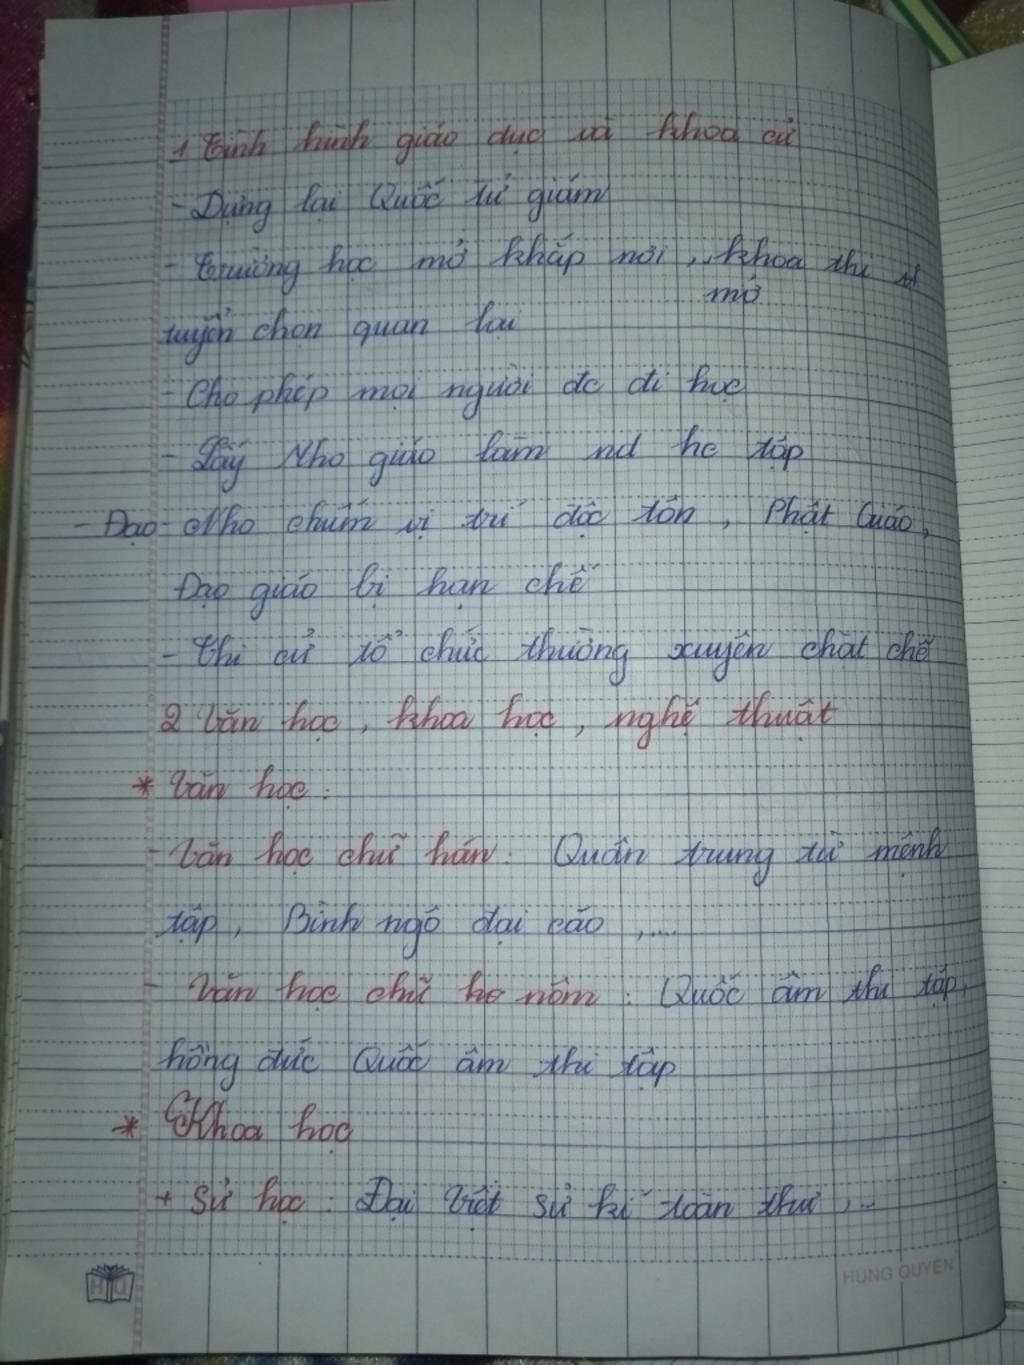 1 Tình hình giáo dục và khoa cử
- Dựng lại Quốc tử giám
- Trường học mở khắp nơi, khoa thi
mở
tuyển chọn quan lại
- Cho phép mọi người đc đi học
- Lấy Nho giáo làm nd hc tập
- Đạo Nho chiếm vị trí độc tôn, Phật Giáo,
Đạo giáo bị hạn chế
- Thi cử tổ chức thường xuyên chặt chẽ
2 Văn học, khoa học, nghệ thuật
* Văn học:
- Văn học chữ hán: Quân trung từ mệnh
tập, Bình ngô đại cáo,....
- Văn học chữ nôm: Quốc âm thi tập,
hồng đức Quốc âm thi tập
* Khoa học
+ Sử học: Đại Việt sử kí toàn thư,...
HQ
HÙNG QUYÊN